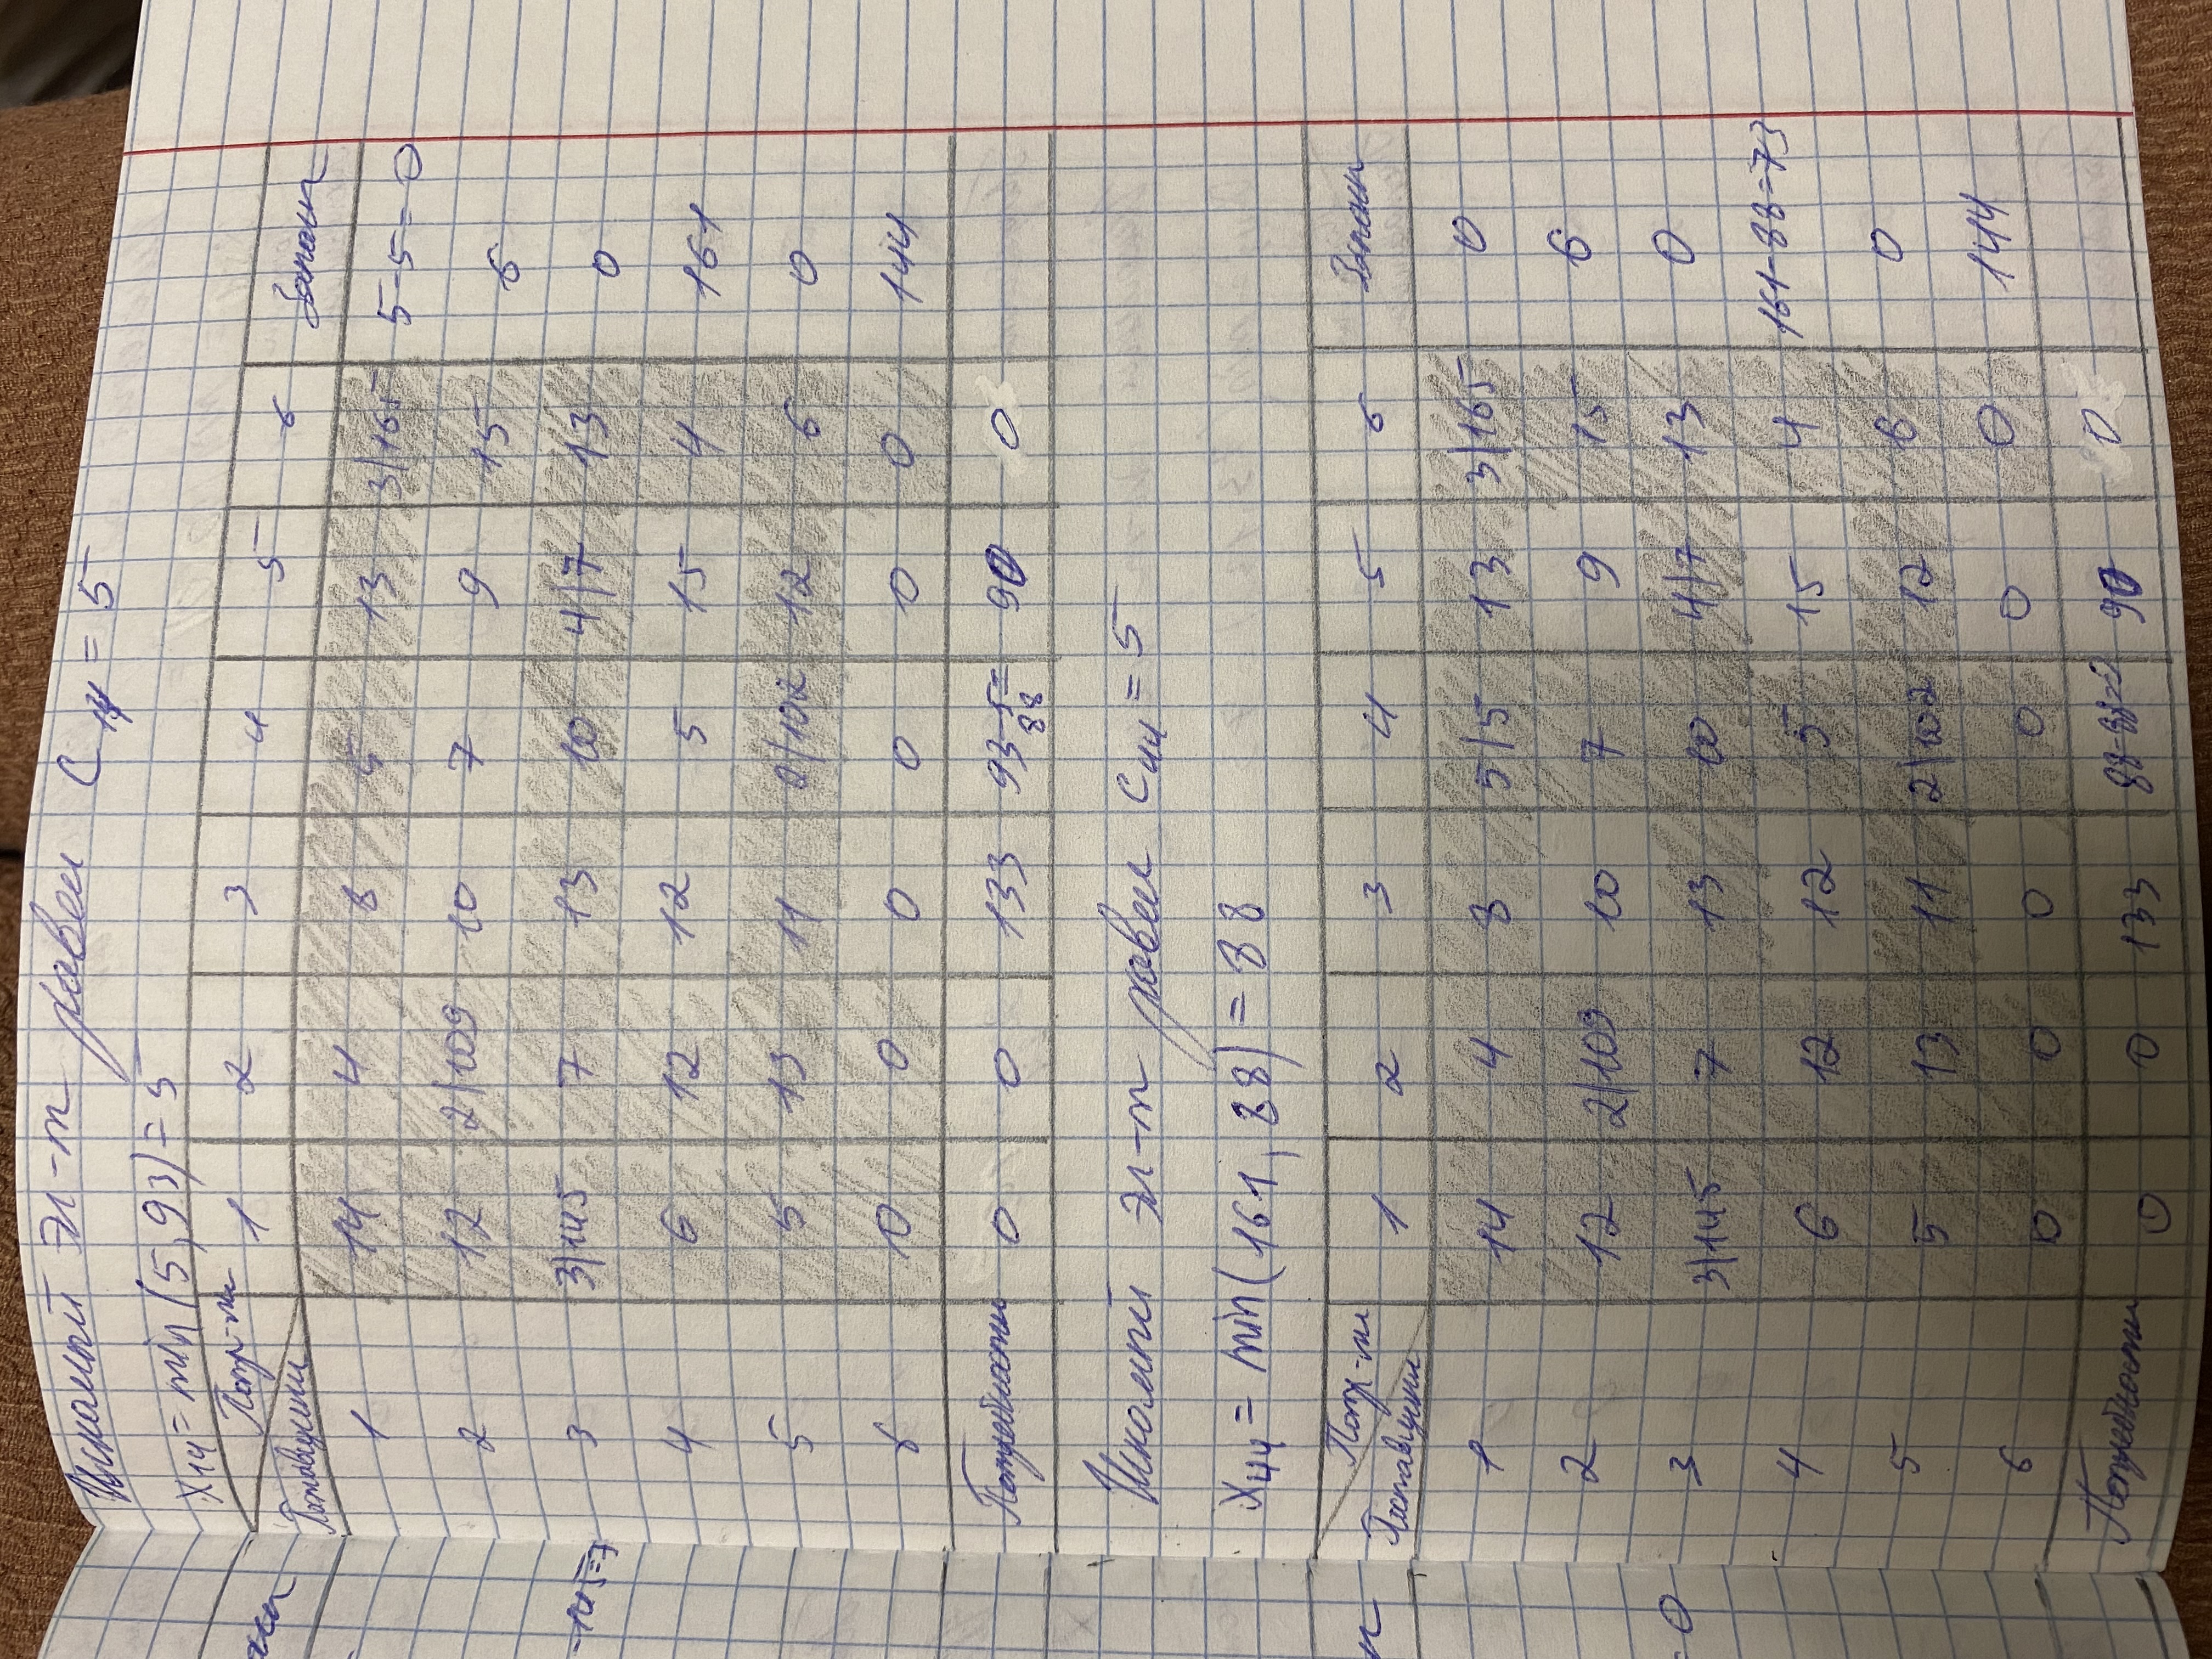 Искомый эл-т равен C14 = 5
x14 = min(5,93) = 5
Потр-ли 1 2 3 4 5 6 Запасы
Поставщики
1 14 4 8 5 13 3|165 5-5=0
2 12 2|109 10 7 9 15 6
-145=7 3 3|145 7 13 10 4|7 13 0
4 6 12 12 5 15 4 161
5 5 13 11 2|102 12 6 0
6 0 0 0 0 0 0 144
Потребности 0 0 133 93-5= 90 0
88
Искомый эл-т равен C44 = 5
x44 = min(161, 88) = 88
Потр-ли 1 2 3 4 5 6 Запасы
Поставщики
1 14 4 8 5|5 13 3|165 0
2 12 2|109 10 7 9 15 6
=0 3 3|145 7 13 10 4|7 13 0
4 6 12 12 5 15 4 161-88=73
5 5 13 11 2|102 12 6 0
6 0 0 0 0 0 0 144
Потребности 0 0 133 88-88=0 90 0